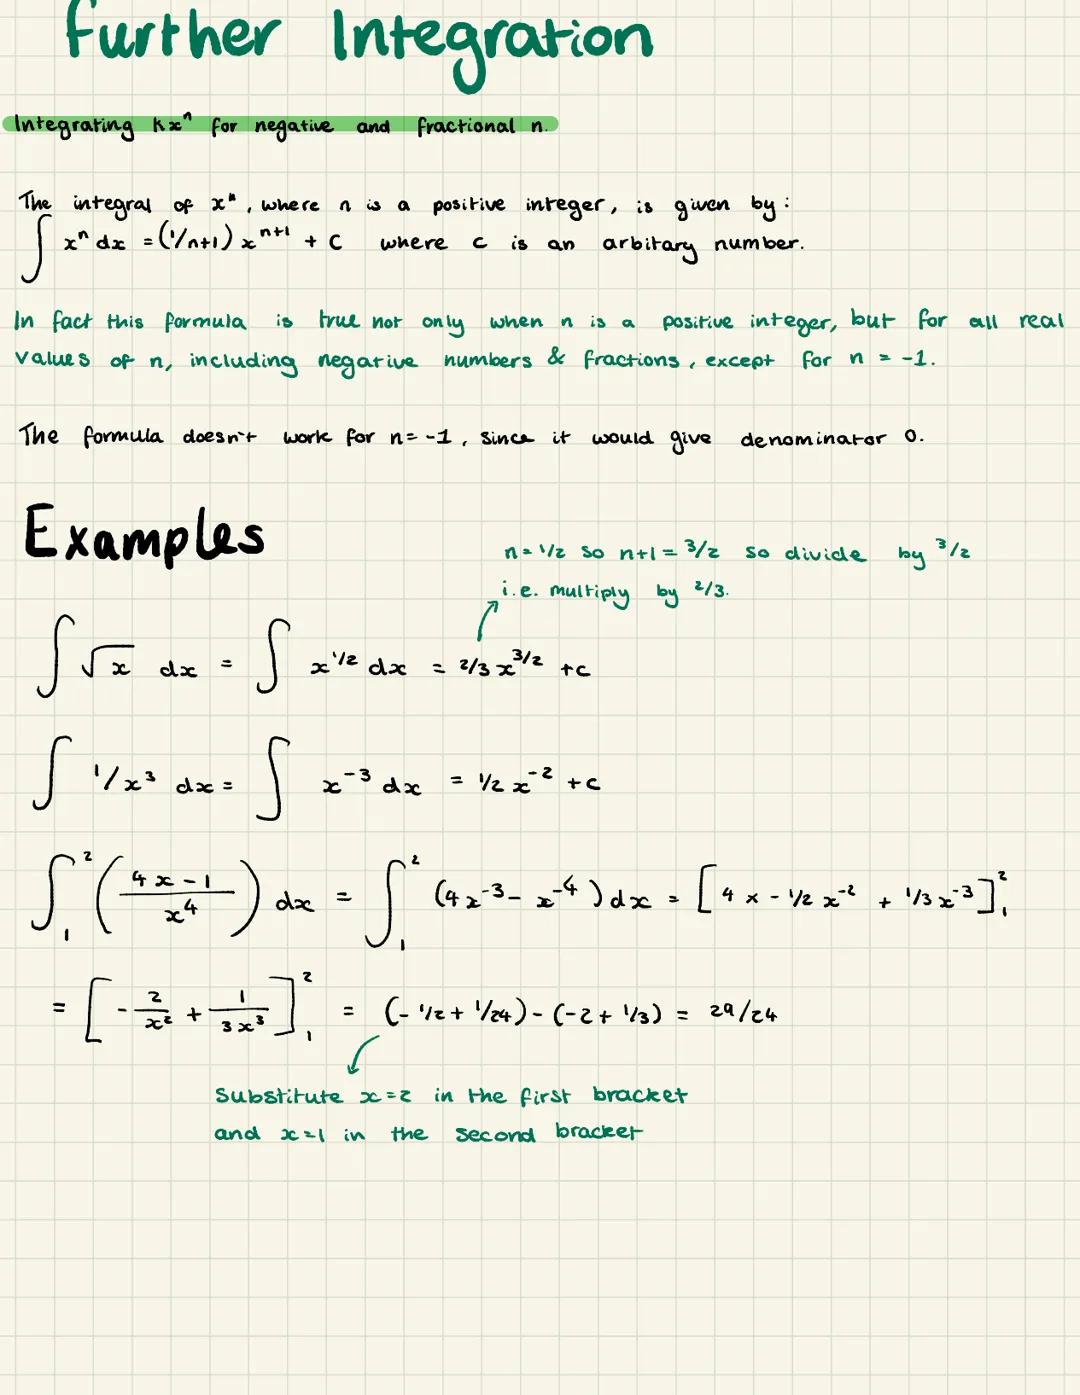 Further Integration
Integrating kxⁿ for negative and fractional n.
The integral of xⁿ, where n is a positive integer, is given by:
∫ xⁿ dx = (1/n+1) xⁿ⁺¹ + C where c is an arbitary number.
In fact this formula is true not only when n is a positive integer, but for all real
values of n, including negative numbers & fractions, except for n = -1.
The formula doesn't work for n = -1, since it would give denominator 0.
Examples
n = 1/2 so n+1 = 3/2 so divide by 3/2
i.e. multiply by 2/3.
∫ √x dx = ∫ x^1/2 dx = 2/3 x^3/2 + c
∫ 1/x³ dx = ∫ x⁻³ dx = 1/2 x⁻² + c
∫₁² (4x-1/x⁴) dx = ∫₁² (4x⁻³ - x⁻⁴) dx = [4 × -1/2 x⁻² + 1/3 x⁻³]₁²
= [-2/x² + 1/3x³]₁² = (-1/2 + 1/24) - (-2 + 1/3) = 29/24
Substitute x = 2 in the first bracket
and x = 1 in the second bracket